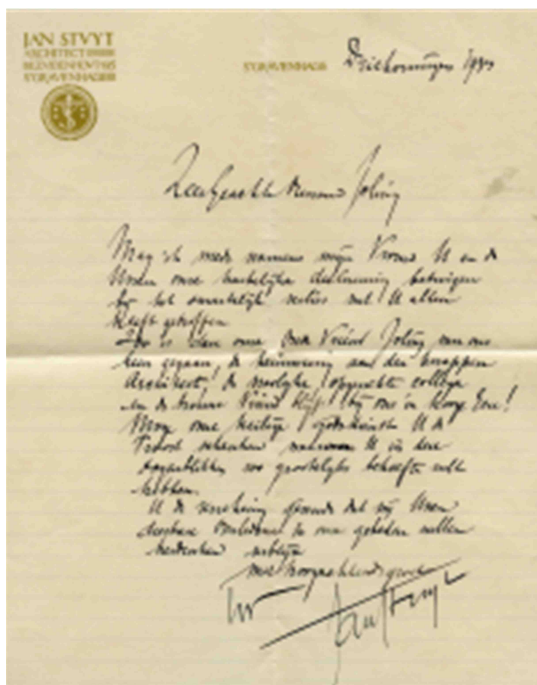 JAN STVYT
ARCHITECT
BEZVIDENHOVT
S'GRAVENHAGE
S'GRAVENHAGE Driekoningen
Zeer Geachte Mevrouw Joling
Mag ik mede namens mijn Vrouw U en de
Uwen onze hartelijke deelneming betuigen
het smartelijk verlies dat U allen
heeft getroffen
Zoo is dan onze Vriend Joling van ons
heen gegaan! de herinnering aan den knappen
Architect, de vroolijke opgewekte collega
en de trouwe Vriend blijft bij ons in hooge Eere!
Moge onze heilige godsdienst U de
Troost schenken waaraan U in deze
oogenblikken zoo grootelijks behoefte zult
hebben.
U de verzekering gevende dat wij Uwen
dierbare Overledene in onze gebeden zullen
gedenken
met hoogachtend
Jan Stuyt